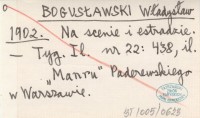 BOGUSŁAWSKI Władysław
1902. Na scenie i estradzie.
— Tyg. Il. nr 22: 438, il.
"Manru" Paderewskiego
w Warszawie.